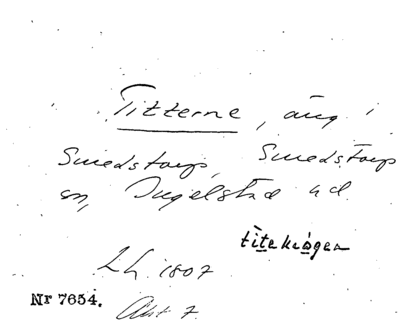 Titterne, äng i
Smedstorp, Smedstorp
sn, Ingelstad hd
titekrogen
Lh. 1807
Nr 7654. Akt 7